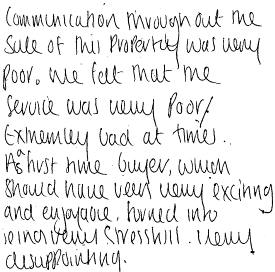 Communication throughout the
Sale of this Property was very
poor. We felt that the
service was very poor!
Extremley bad at times.
As a first time buyer, which
should have been very exciting
and enjoyable, turned into
being very stressfull. Very
dissappointing.